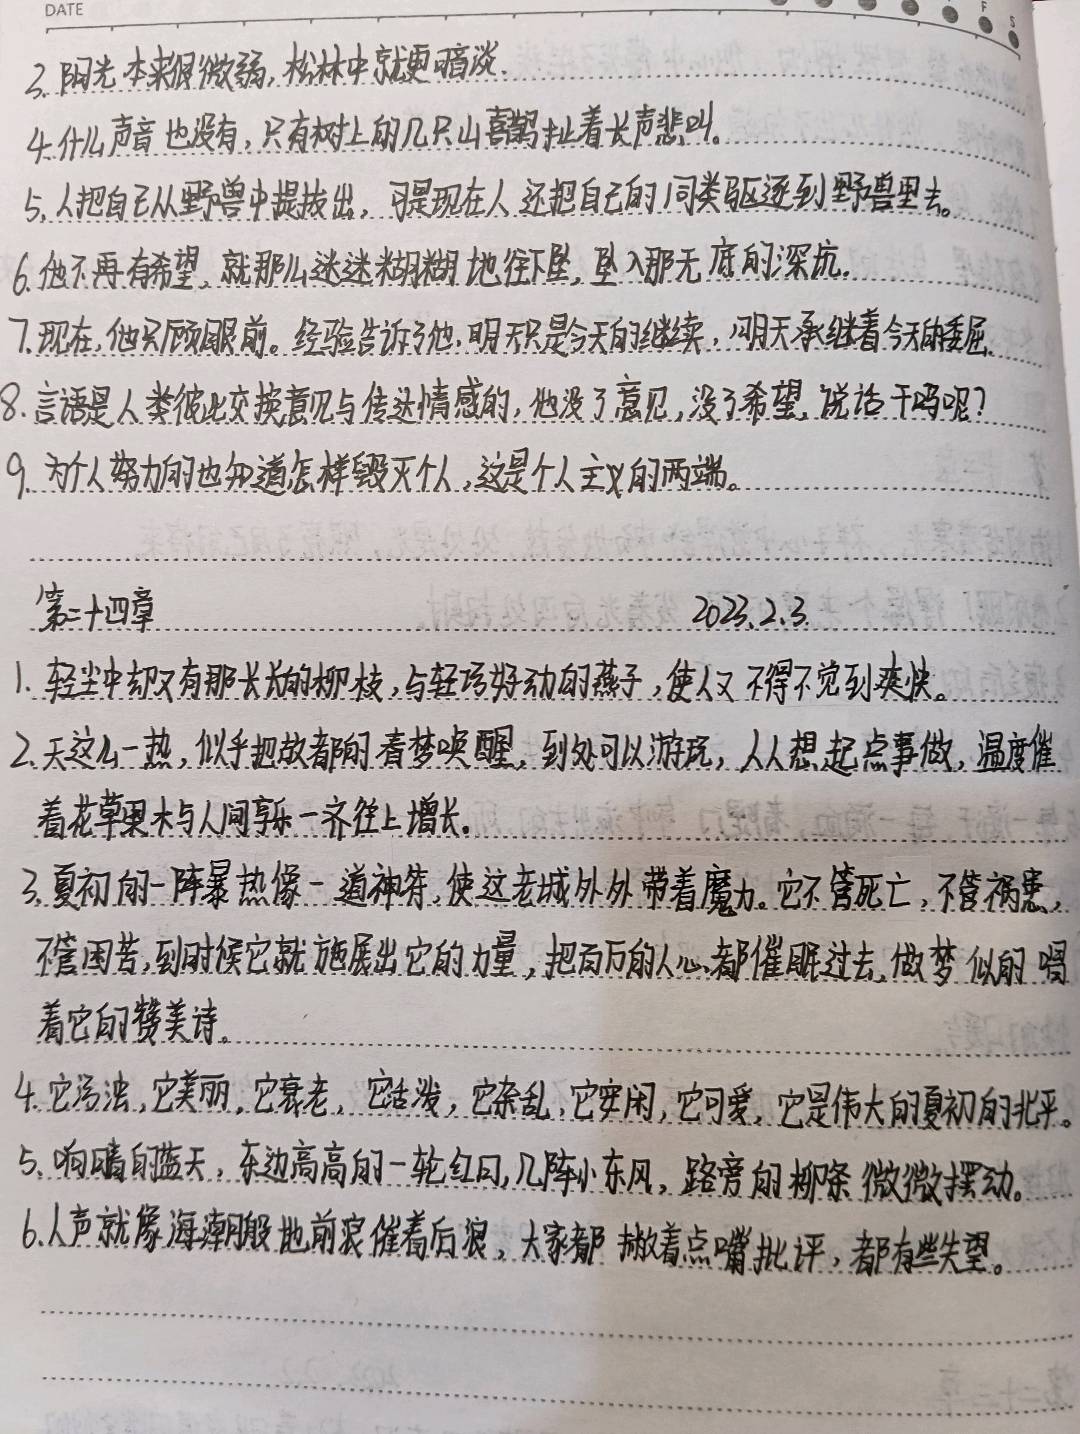 DATE
F
S
3. 阳光本来很微弱,松林中就更暗淡.
4. 什么声音也没有,只有树上的几只山喜鹊扯着长声悲叫。
5. 人把自己从野兽中提拔出,可是现在人还把自己的同类驱逐到野兽里去。
6. 他不再有希望,就那么迷迷糊糊地往下坠,坠入那无底的深坑.
7. 现在,他只顾眼前。经验告诉了他,明天只是今天的继续,明天承继着今天的委屈.
8. 言语是人类彼此交换意见与传达情感的,他没了意见,没了希望,说话干吗呢?
9. 为个人努力的也知道怎样毁灭个人,这是个人主义的两端。
第二十四章 2023.2.3.
1. 轻尘中却又有那长长的柳枝,与轻巧好动的燕子,使人又不得不觉到爽快。
2. 天这么一热,似乎把故都的春梦唤醒,到处可以游玩,人人想起点事做,温度催
着花草果木与人间享乐一齐往上增长.
3. 夏初的一阵暴热像一道神符,使这老城外外带着魔力。它不管死亡,不管祸患,
不管困苦,到时候它就施展出它的力量,把百万的人心都催眠过去,做梦似的唱
着它的赞美诗。
4. 它污浊,它美丽,它衰老,它活泼,它杂乱,它安闲,它可爱,它是伟大的夏初的北平。
5. 响晴的蓝天,东边高高的一轮红日,几阵小东风,路旁的柳条微微摆动。
6. 人声就像海潮般地前浪催着后浪,大家都撇着点嘴批评,都有些失望。